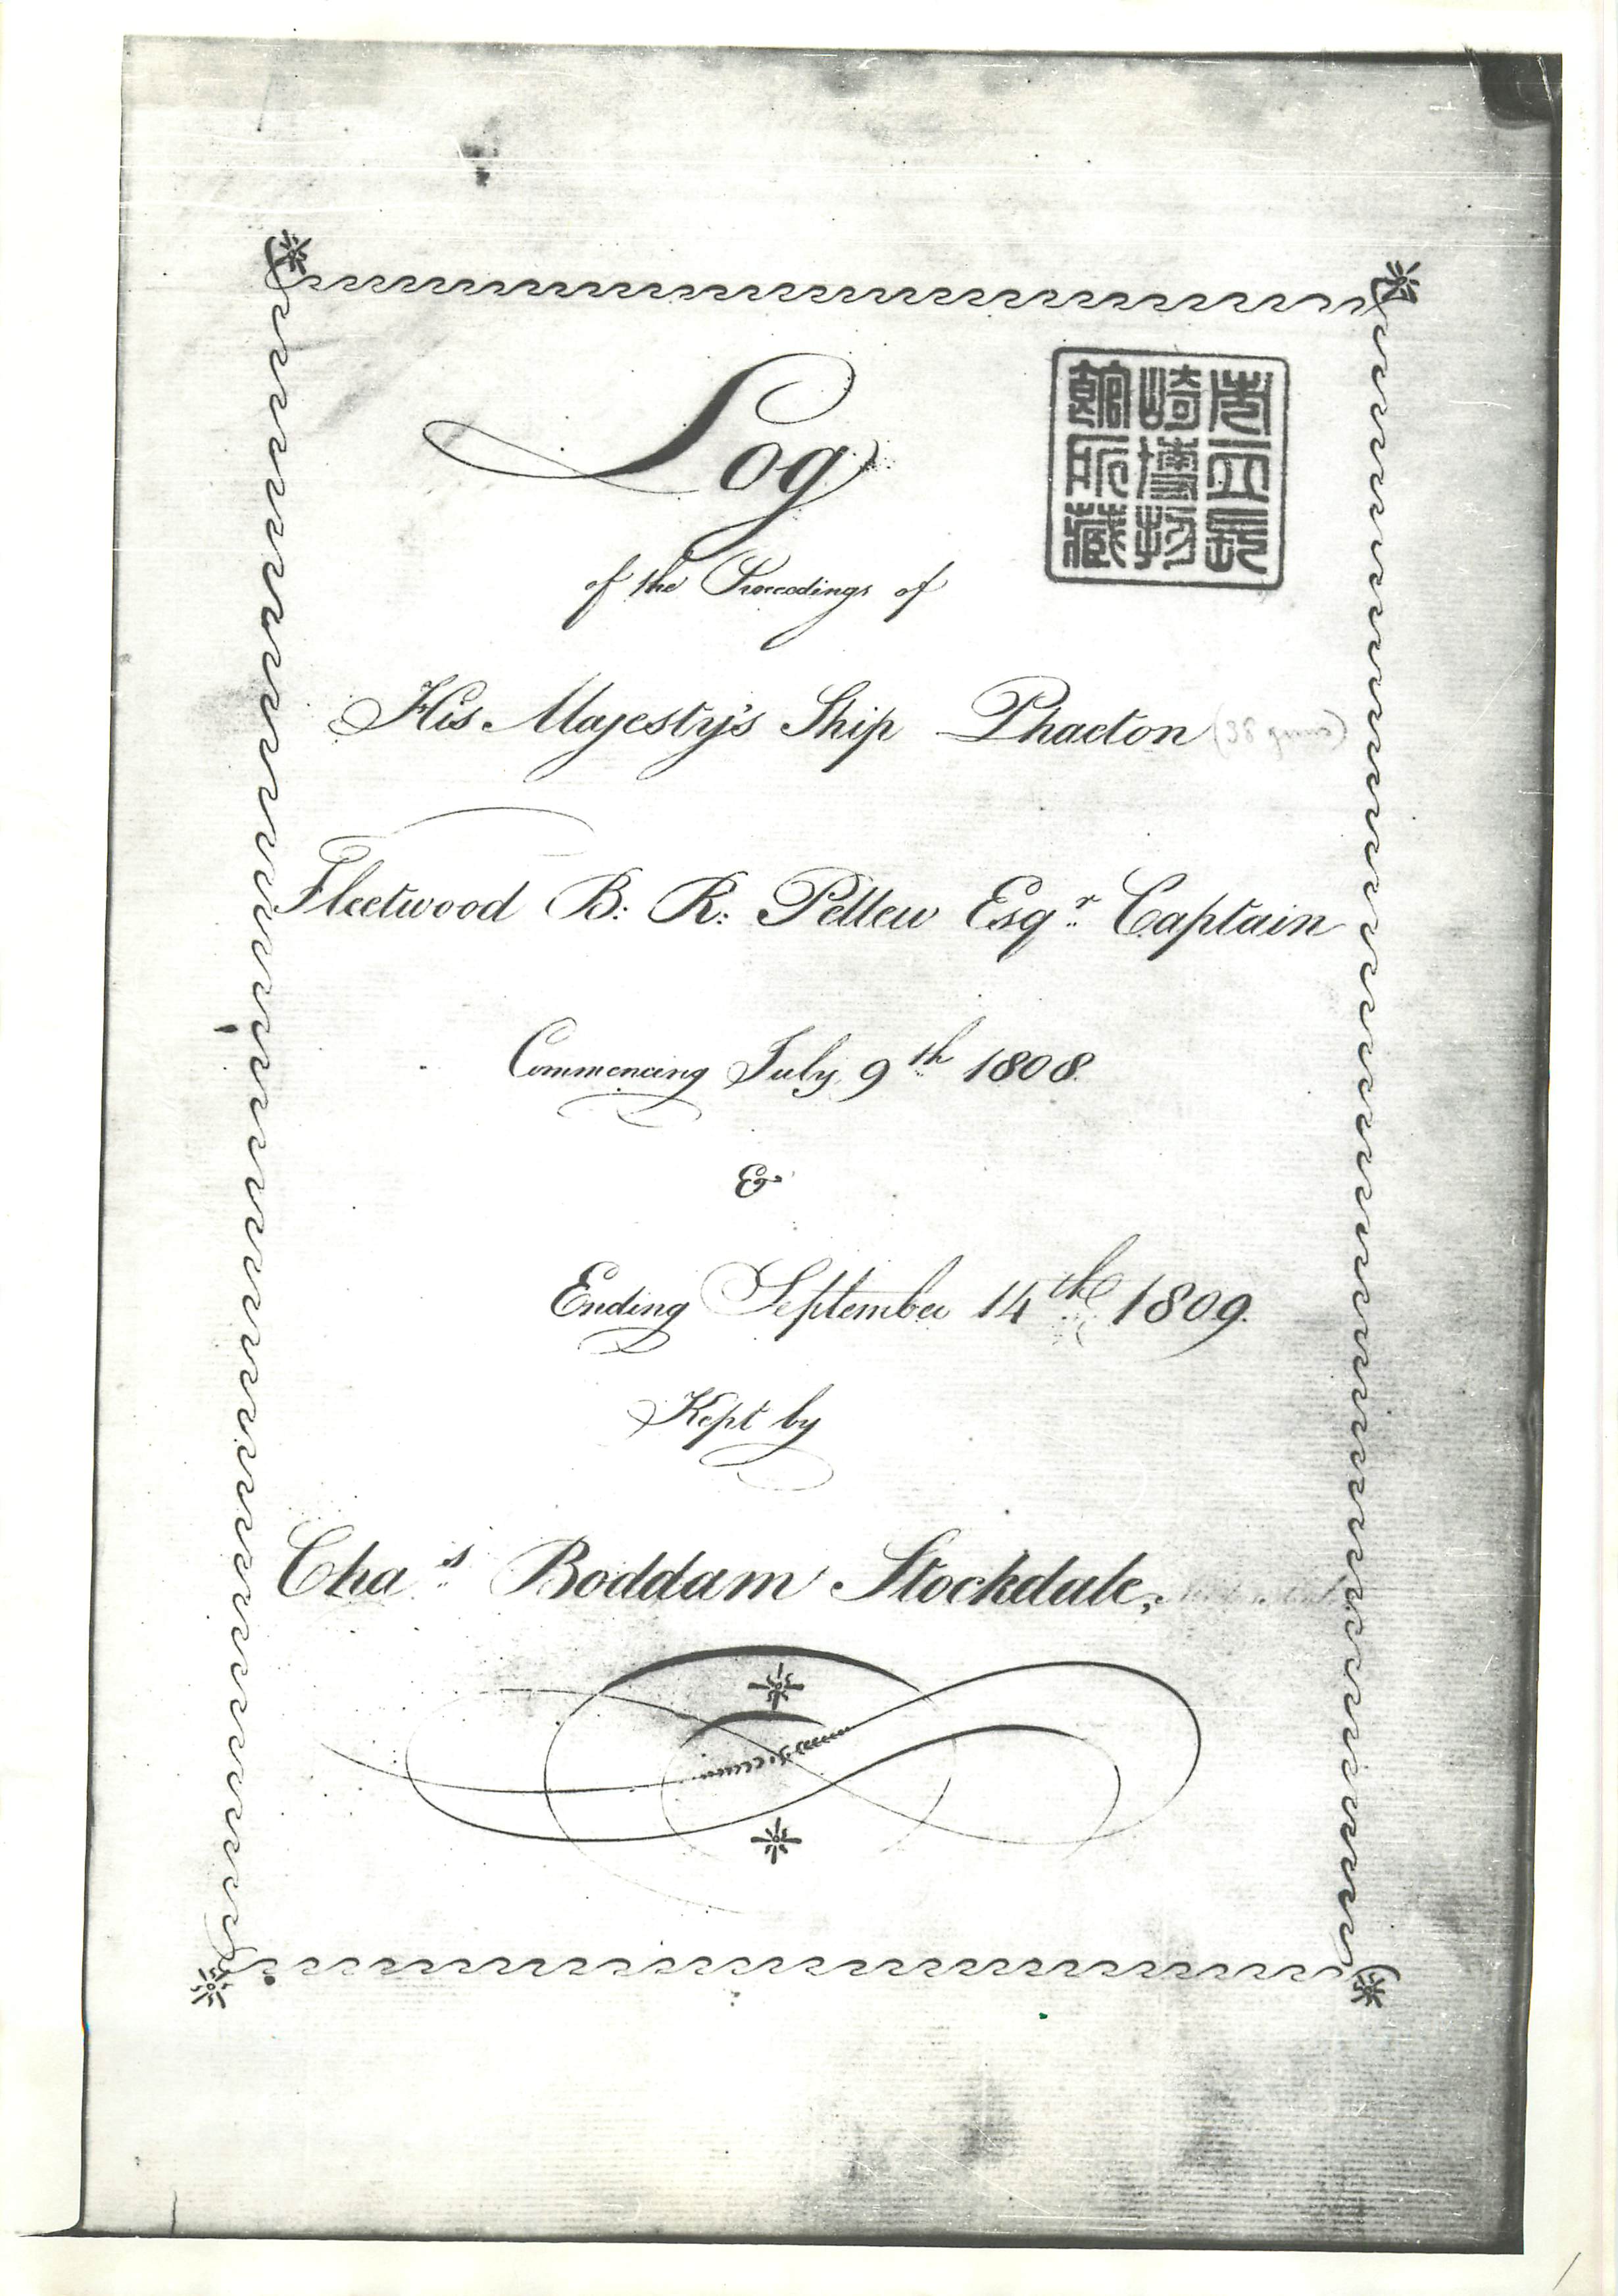 Log
市立長
崎博物
館所藏
of the Proceedings of
His Majesty's Ship Phaeton
Fleetwood B: R: Pellew Esqr Captain
Commencing July 9th 1808.
&
Ending September 14th 1809.
Kept by
Chas Boddam Stockdale,